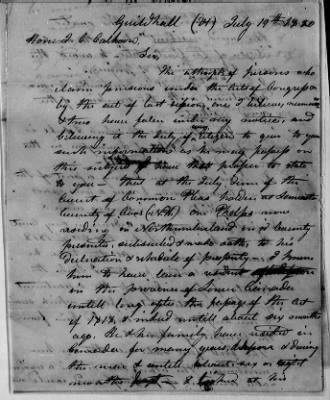 Guildhall (Vt) July 19th 1820
Honr J. C. Calhoun,
Sir,
The attempts of persons who
claim pensions under the Acts of Congress
by the act of last session, one I believe,
& two have fallen under my notice, and
believing it the duty of citizens to give to you
such information as he may possess on
this subject I have thot proper to state
to you — that at the July Term of the
Court of Common Pleas holden at Lancaster
County of Coos (NH) One Phelps now
residing in Northumberland in sd County
presented, subscribed & made oath, to his
Declaration & schedule of property — I know
him to have been a resident
in the province of Lower Canada
untill long after the passage of the act
of 1818, & indeed untill about six months
ago. He & his family have resided in
Canada for many years, before & during
the war & untill about six or eight
months — I looked at his